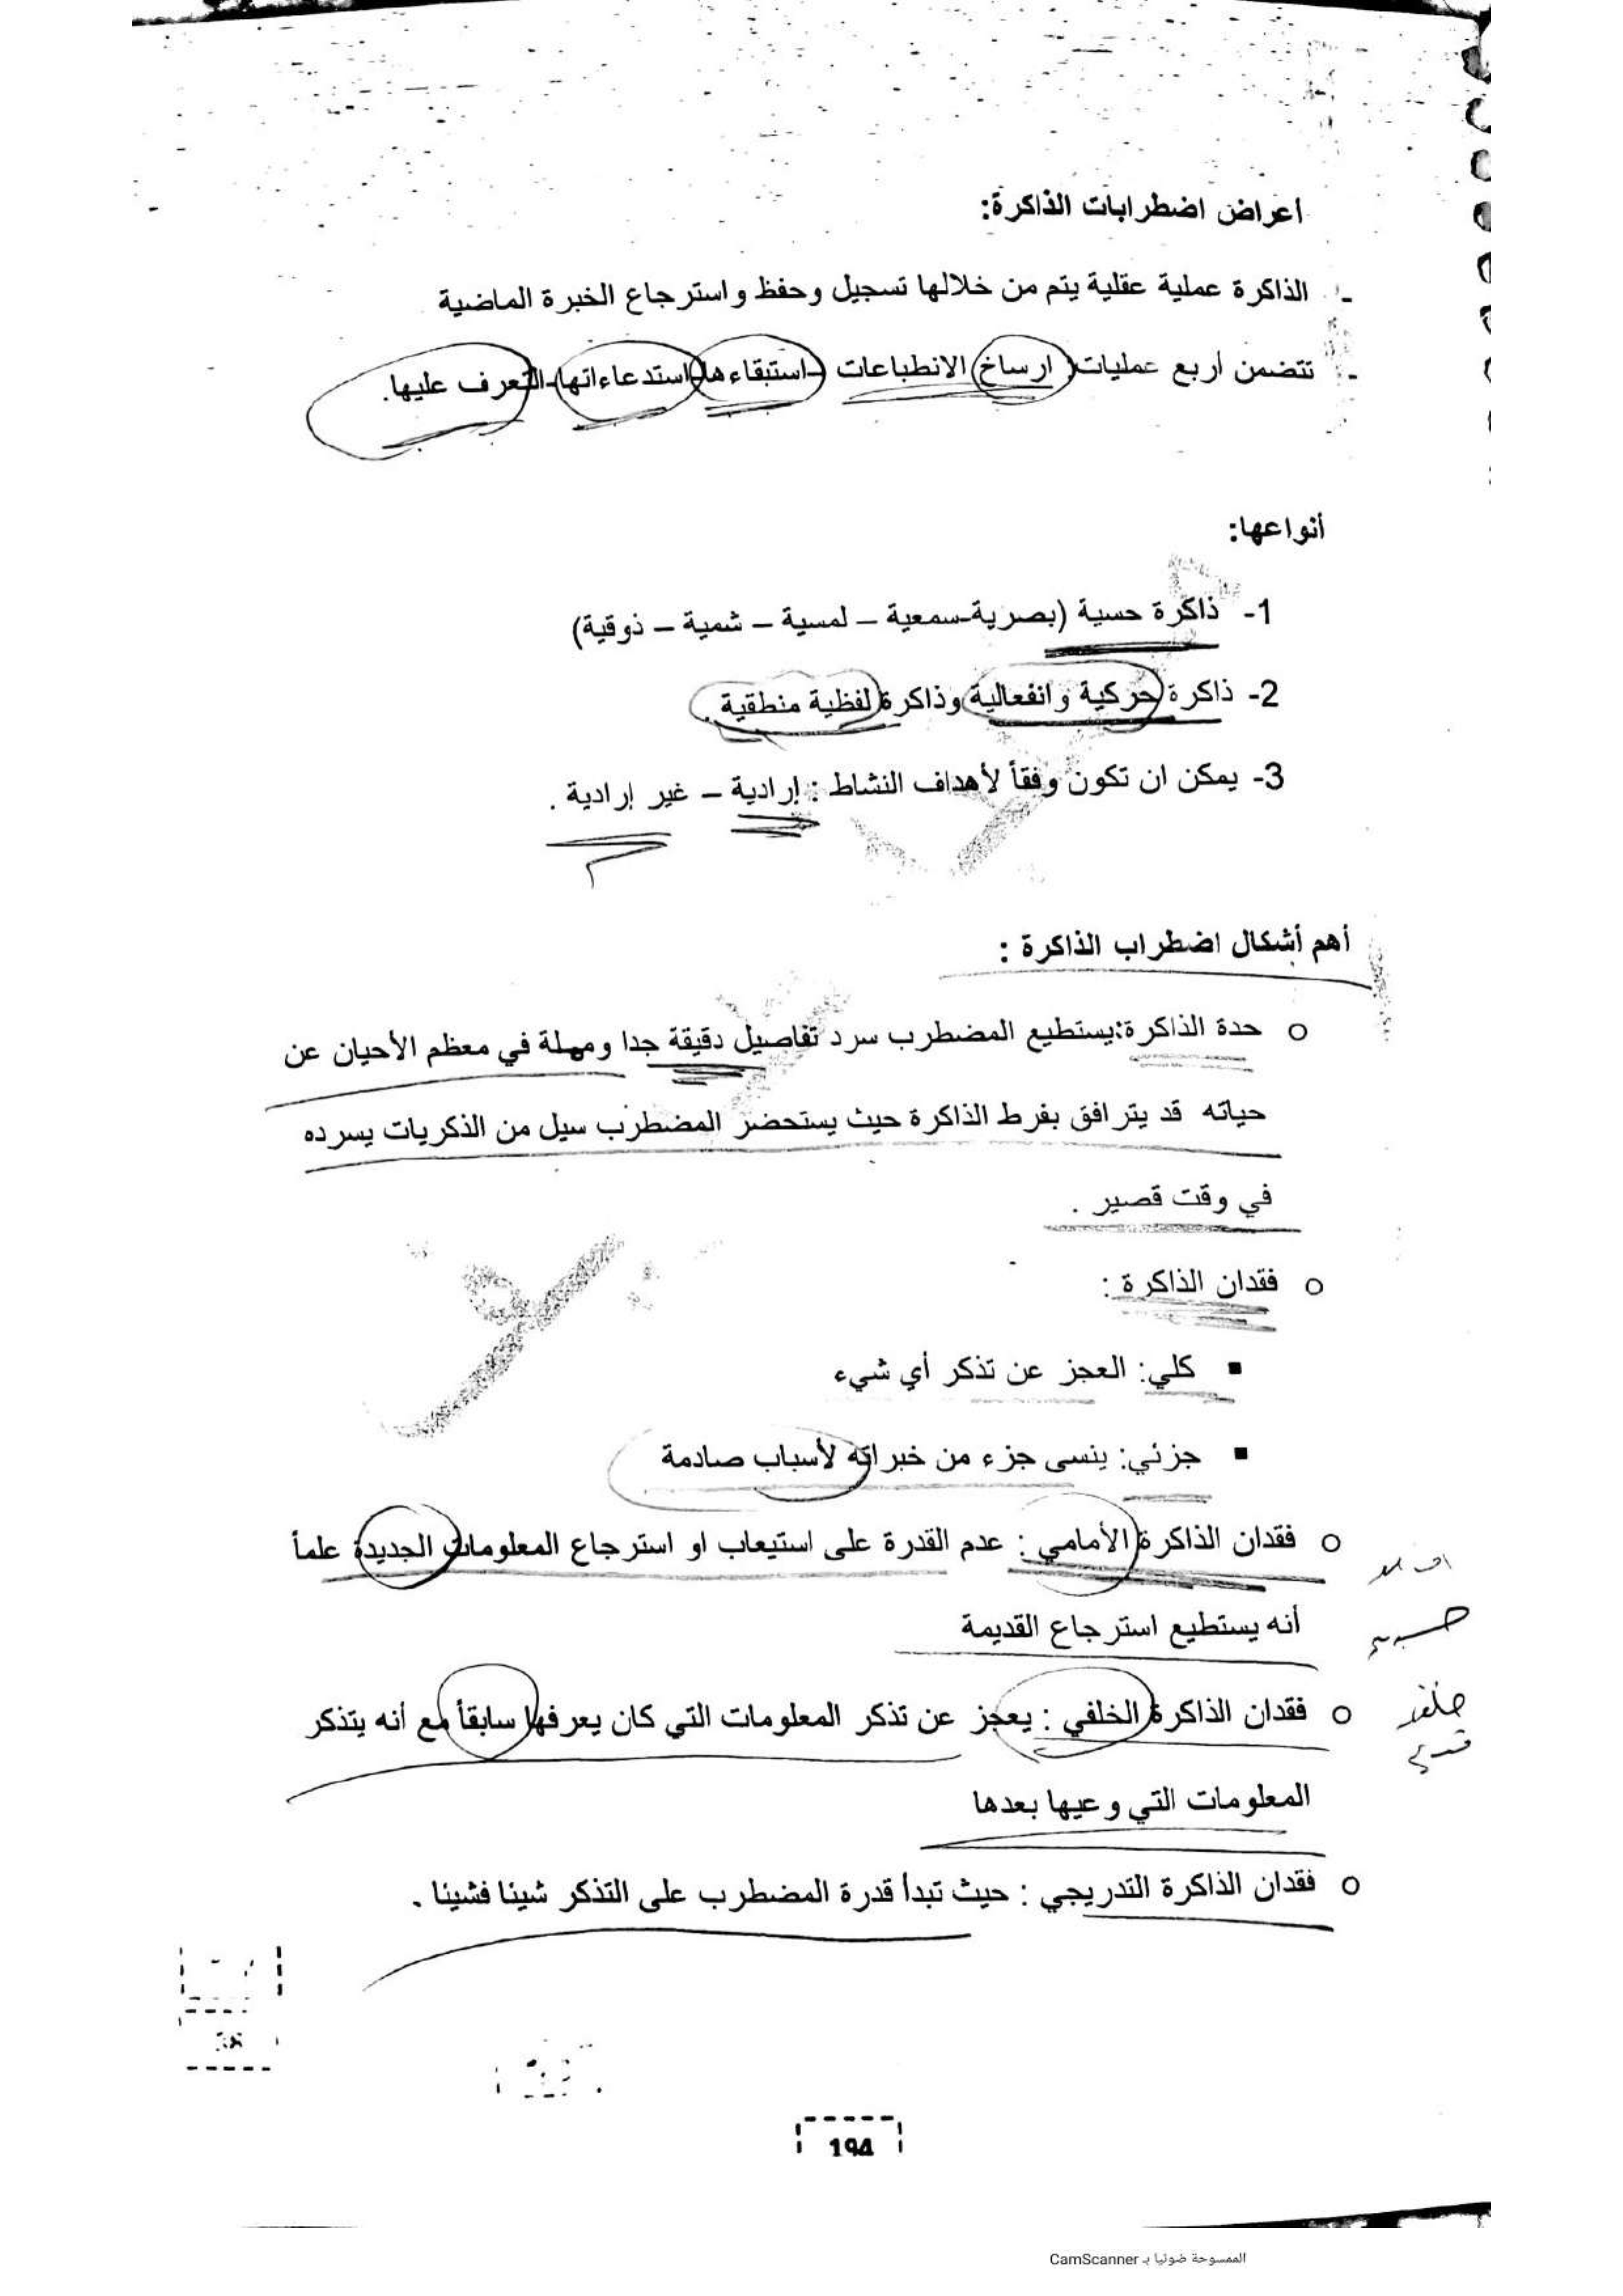 أعراض اضطرابات الذاكرة:
- الذاكرة عملية عقلية يتم من خلالها تسجيل وحفظ واسترجاع الخبرة الماضية
- تتضمن أربع عمليات( ارساخ الانطباعات -استبقاءها-استدعاءاتها-التعرف عليها.
أنواعها:
1- ذاكرة حسية (بصرية-سمعية – لمسية – شمية – ذوقية)
2- ذاكرة حركية وانفعالية وذاكرة لفظية منطقية .
3- يمكن ان تكون وفقاً لأهداف النشاط : إرادية – غير إرادية .
أهم أشكال اضطراب الذاكرة :
o حدة الذاكرة:يستطيع المضطرب سرد تفاصيل دقيقة جدا ومهلة في معظم الأحيان عن
حياته قد يترافق بفرط الذاكرة حيث يستحضر المضطرب سيل من الذكريات يسرده
في وقت قصير .
o فقدان الذاكرة :
▪ كلي: العجز عن تذكر أي شيء
▪ جزئي: ينسى جزء من خبراته لأسباب صادمة
o فقدان الذاكرة الأمامي : عدم القدرة على استيعاب او استرجاع المعلومات الجديدة علماً
أنه يستطيع استرجاع القديمة
o فقدان الذاكرة الخلفي : يعجز عن تذكر المعلومات التي كان يعرفها سابقاً مع أنه يتذكر
المعلومات التي وعيها بعدها
o فقدان الذاكرة التدريجي : حيث تبدأ قدرة المضطرب على التذكر شيئا فشيئا .
38
194
الممسوحة ضوئيا بـ CamScanner